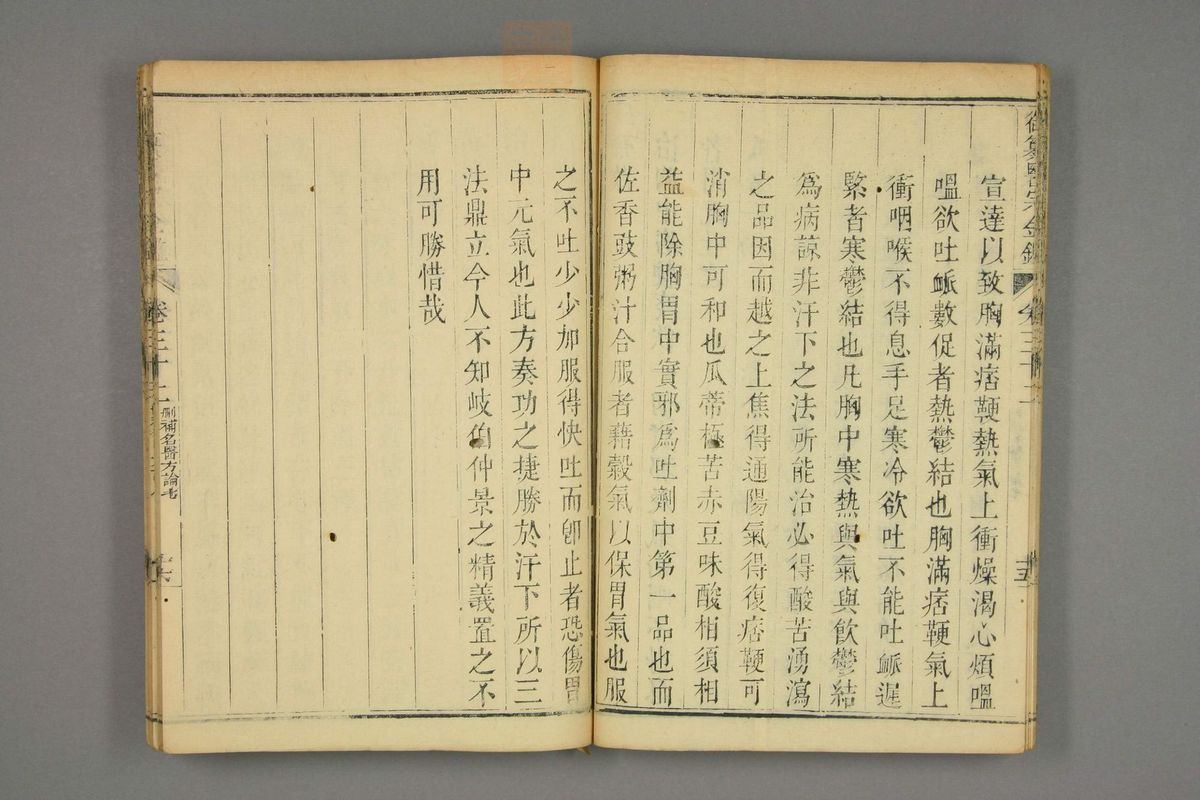 御纂醫宗金鑑
卷三十二
十五
宣達以致胸滿痞鞕熱氣上衝燥渴心煩嗢
嗢欲吐脈數促者熱鬱結也胸滿痞鞕氣上
衝咽喉不得息手足寒冷欲吐不能吐脈遲
緊者寒鬱結也凡胸中寒熱與氣與飲鬱結
爲病諒非汗下之法所能治必得酸苦湧瀉
之品因而越之上焦得通陽氣得復痞鞕可
消胸中可和也瓜蒂極苦赤豆味酸相須相
益能除胸胃中實邪爲吐劑中第一品也而
佐香豉粥汁合服者藉穀氣以保胃氣也服
之不吐少少加服得快吐而卽止者恐傷胃
中元氣也此方奏功之捷勝於汗下所以三
法鼎立今人不知岐伯仲景之精義置之不
用可勝惜哉
刪補名醫方論七